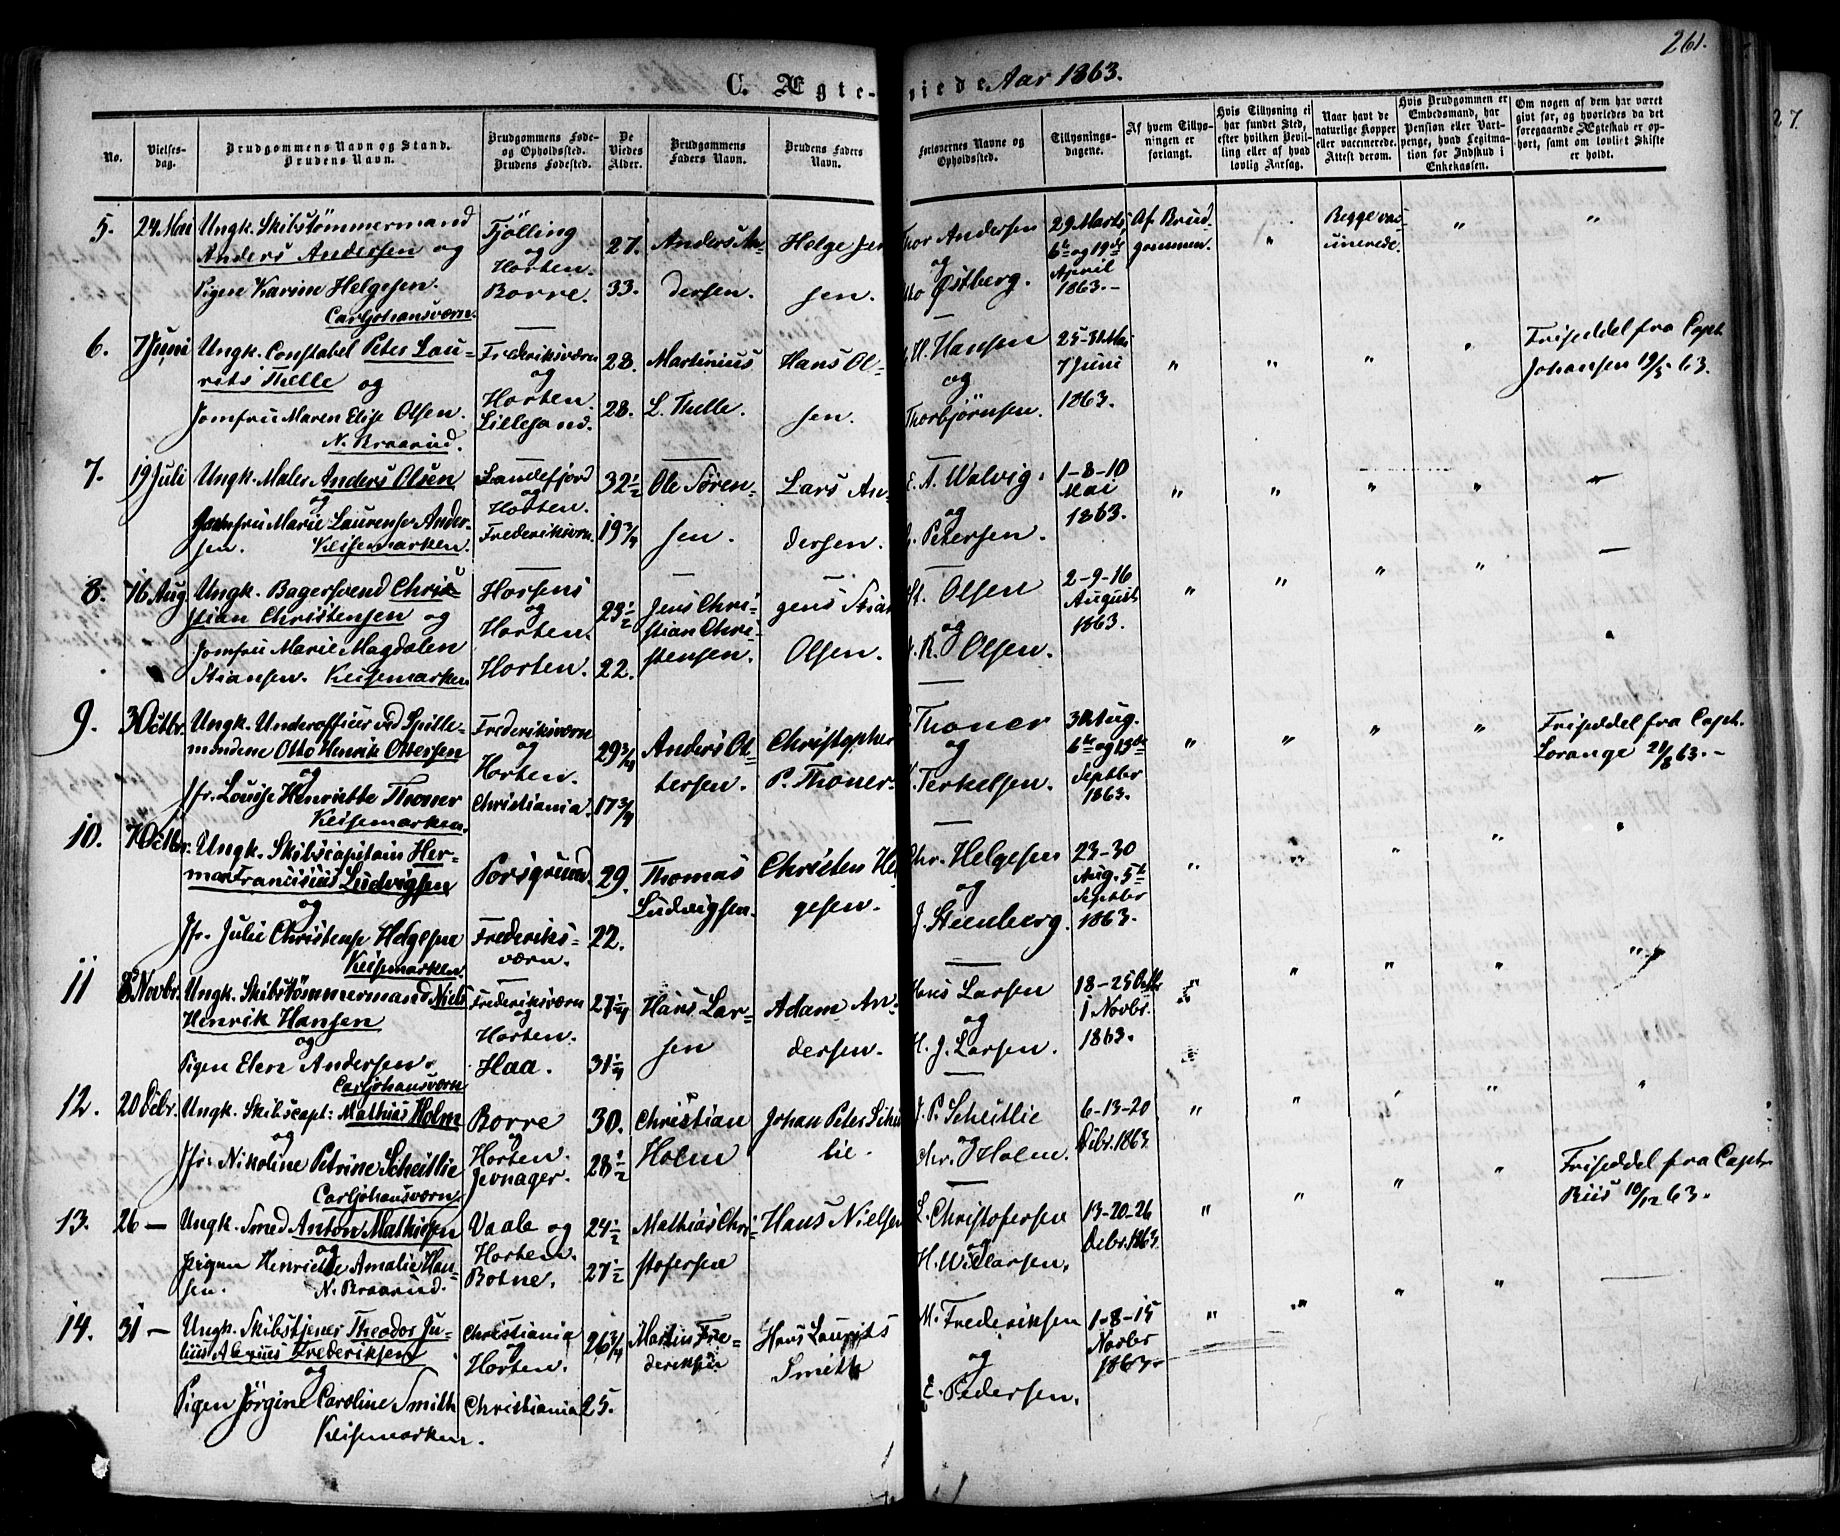 261.
C. Ægteviede Aar 1863.
No.
Vielsesdag.
Brudgommens Navn og Stand.
Brudens Navn.
Brudgommens Føde-
og Opholdssted.
Brudens Fødested.
De
Viedes
Alder.
Brudgommens
Faders Navn.
Brudens Faders
Navn.
Forlovernes Navne og
Opholdssted.
Tillysnings-
dagene.
Af hvem Tillys-
ningen er
forlangt.
Hvis Tillysning ei
har fundet Sted,
efter hvilken Bevil-
ling eller af hvad
lovlig Aarsag.
Naar havt de
naturlige Kopper
eller vaccinerede.
Attest derom.
Hvis Brudgommen er
Embedsmand, har
Pension eller Vart-
penge, hvad Legitima-
tion for Indskud i
Enkekassen.
Om nogen af dem har været
gift før, og hvorledes da det
foregaaende Ægteskab er op-
hørt, samt om lovligt Skifte
er holdt.
5. 24 Mai Ungk. Skibstømmermand
Anders Andersen og
Pigen Karine Helgesen.
Carljohansværn.
Tjølling
og
Horten.
Borre.
27.
33.
Anders An-
dersen.
Helge Jen
sen.
Thor Andersen
og
Østberg.
29 Marts,
6te og 19de
April
1863.-
Af Brud-
gommen.
"
Begge vac-
cinerede.
"
"
6. 7 Juni Ungk. Constabel Peter Lau-
rits Thelle og
Jomfru Maren Elise Olsen.
N. Braarud.
Frederiksværn
og
Horten.
Lillesand.
28.
28.
Martinius
L. Thelle.
Hans Ol-
sen.
H. Hansen
og
Thorbjørnsen.
25-31 Mai
7 Juni
1863.
" " " "
Friseddel fra Capt.
Johansen 19/5 63.
7. 19 Juli Ungk. Maler Anders Olsen
og
Jomfru Marie Laurense Ander-
sen. Keisemarken.
Sandefjord
og
Horten.
Frederiksvrn.
32 1/2
19 3/4
Ole Søren-
sen.
Lars An-
dersen.
E. A. Walvig.
og
Petersen.
1-8-10
Mai
1863.
" " " "
8. 16 Aug. Ungk. Bagersvend Chri-
stian Christensen og
Jomfru Marie Magdalen
Stiansen. Keisemarken
Horsens
og
Horten.
Horten.
23 1/2
22.
Jens Chri-
stian Chri-
stensen.
gens Stian
Olsen.
St. Olsen
og
K. Olsen.
2-9-16
August
1863.
" " " " "
9. 3 Octbr. Ungk. Underofficer ved Spille-
mændene Otto Henrik Ottersen
og
Jfr. Louise Henriette Thoner
Keisemarken.
Frederiksværn
og
Horten.
Christiania.
29 3/4
17 3/4
Anders Ot-
tersen.
Christopher
P. Thoner.
Thoner
og
Terkelsen.
30 Aug.
6te og 13de
Septbr
1863.
" " " "
Friseddel fra Capt.
Lorange 21/8 63.-
10. 7 Octbr. Ungk. Skibscapitain Her-
man Franciscus Ludvigsen
og
Jfr. Julie Christense Helgesen
Keisemarken.
Porsgrund
Frederiks-
værn.
29.
22.
Thomas
Ludvigsen.
Christen Hel
gesen.
Chr. Helgesen
og
J. Steenberg.
23-30
Aug. 5te
Septbr
1863.
" " " " "
11 8 Novbr. Ungk. Skibstømmermand Niels
Henrik Hansen
og
Pigen Elen Andersen.
Carljohansværn
Frederiksværn
og
Horten.
Haa.
27 1/4
31 1/4
Hans Lar-
sen
Adam An-
dersen.
Hans Larsen
og
H. J. Larsen.
18-25 Octbr
1 Novbr.
1863.
" " " " "
12. 20 Debr. Ungk. Skibscapt: Mathias Holm
og
Jfr. Nikoline Petrine Scheitlie
Carljohansværn.
Borre
og
Horten.
Jevnager.
30.
28 1/2
Christian
Holm
Johan Peter Schei
lie.
P. Scheitlie
og
Chr. Holm.
6-13-20
Debr. 1863.
" " " " "
13. 26 - Ungk. Smed Anton Mathisen
og
Pigen Henriette Amalie Han-
sen. N. Braarud.
Vaale og
Horten.
Botne.
24 1/2
27 1/2
Mathias Chri-
stofersen
Hans Nielsen
L. Christofersen
og
H. Willarsen.
13-20-26
Debr. 1863.
" " " "
Friseddel fra Capt.
Riis 10/12 63.
14. 31 - Ungk. Skibstjener Theodor Ju-
lius Alexius Frederiksen
og
Pigen Jørgine Caroline Smith
Keisemarken.
Christiania
og
Horten.
Christiania
26 3/4
25.
Martin Fre-
deriksen
Hans Laurits
Smith
M. Frederiksen
og
E. Pedersen.
1-8-15
Novbr
1863.
" " " "
27.